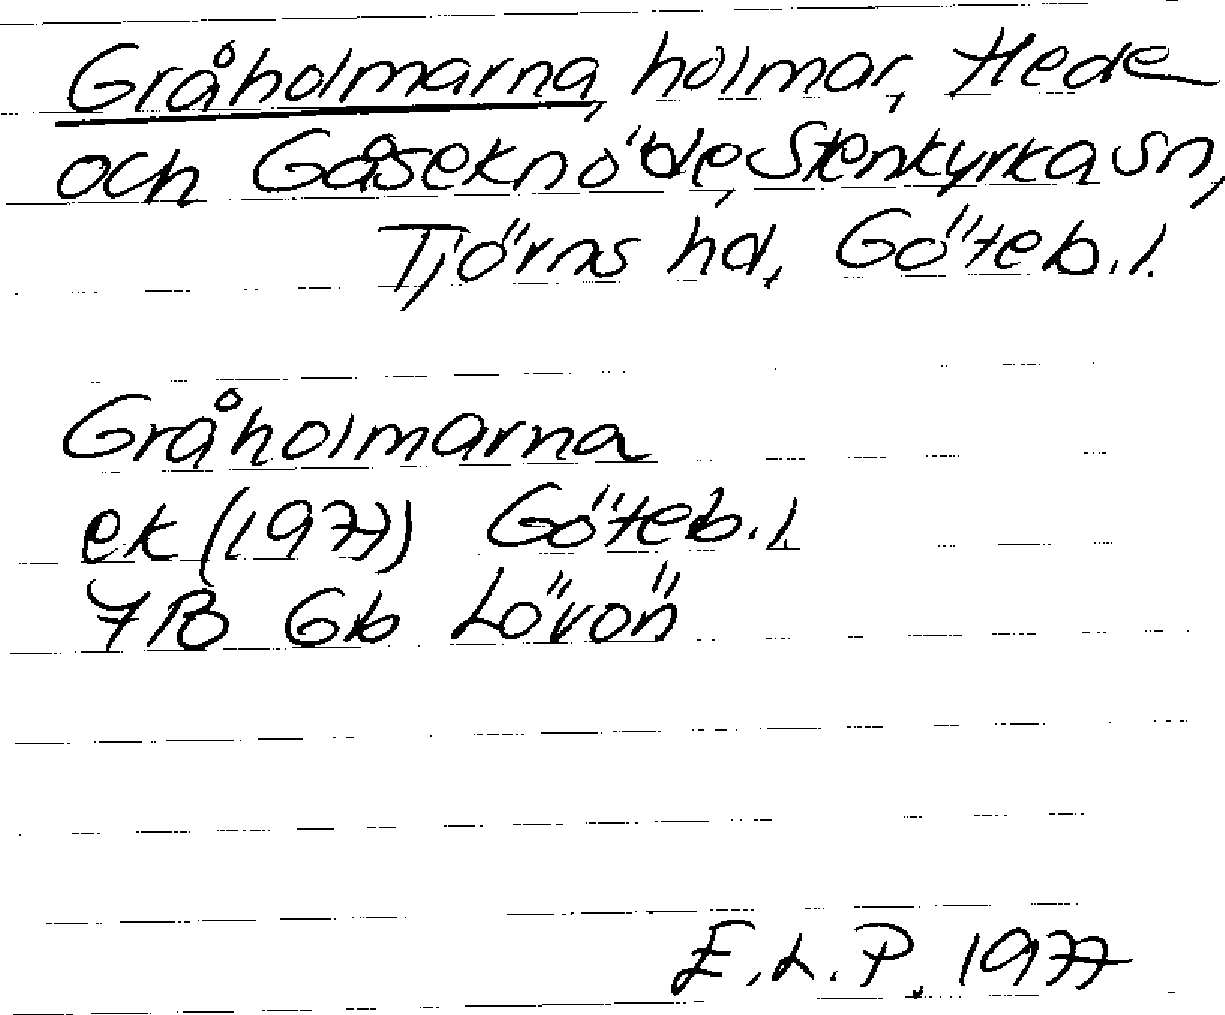 Gråholmarna, holmar, Hede
och Gåseknöde, Stenkyrka sn,
Tjörns hd, Göteb. l.
Gråholmarna
ek (1977) Göteb. l.
7B Gb Lövön
E.L.P. 1977